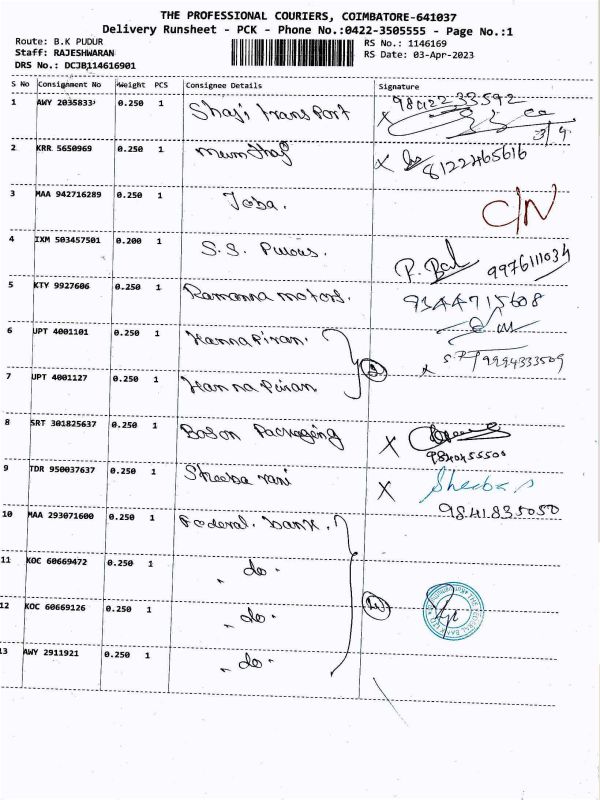 THE PROFESSIONAL COURIERS, COIMBATORE-641037
Delivery Runsheet - PCK - Phone No.:0422-3505555 - Page No.:1
Route: B.K PUDUR
RS No.: 1146169
Staff: RAJESHWARAN
RS Date: 03-Apr-2023
DRS No.: DCJB114616901
S No Consignment No Weight PCS Consignee Details Signature
1 AWY 2035833 0.250 1 Shaji transport 9842233592
3/4
2 KRR 5650969 0.250 1 Mumthaj X 8122465616
3 MAA 942716289 0.250 1 Joba. C/N
4 IXM 503457501 0.200 1 S.S. 9976111034
5 KTY 9927606 0.250 1 Ramanna motors. 9344715608
6 UPT 4001101 0.250 1 Hannapiran. 9994333509
7 UPT 4001127 0.250 1 Hannapiran
8 SRT 301825637 0.250 1 Boson Packageing X
9840455500
9 TDR 950037637 0.250 1 Sheeba rani X Sheeba
9841835050
10 MAA 293071600 0.250 1 Federal. bank.
11 KOC 60669472 0.250 1 " do "
12 KOC 60669126 0.250 1 " do "
13 AWY 2911921 0.250 1 " do "